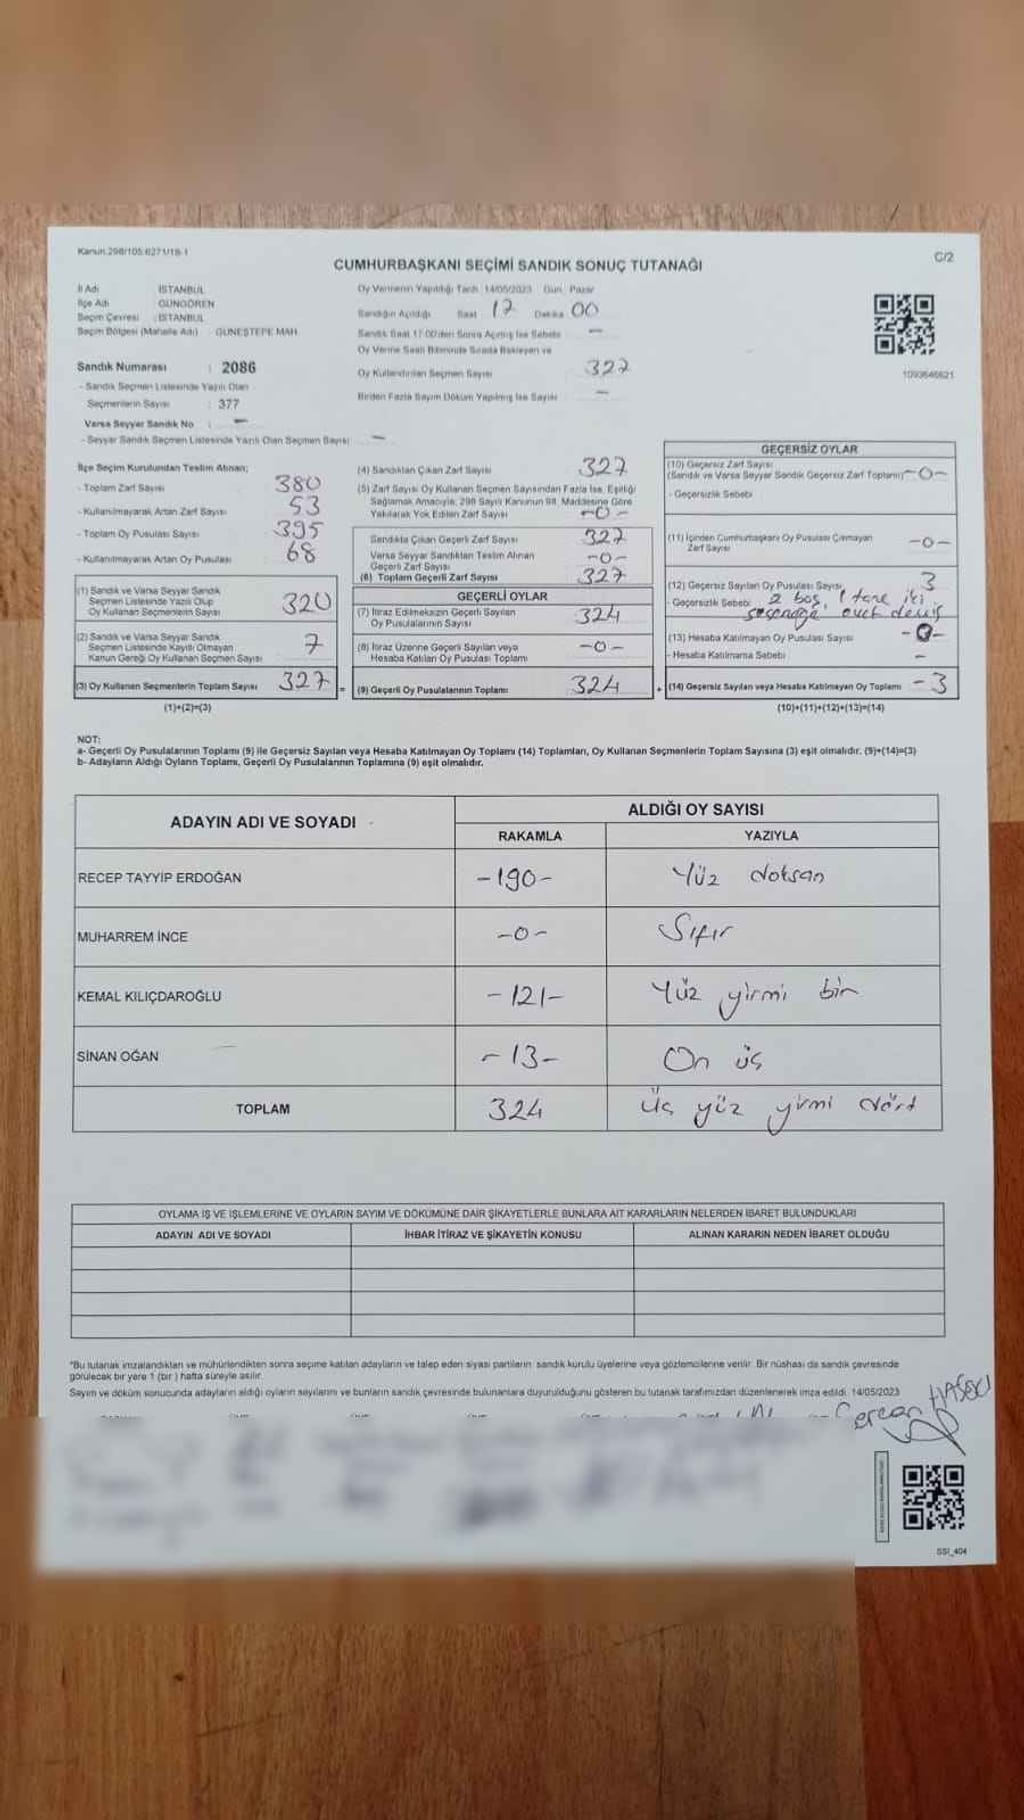 Kanun.298/105.6271/18-1
C/2
CUMHURBAŞKANI SEÇİMİ SANDIK SONUÇ TUTANAĞI
İl Adı İSTANBUL
İlçe Adı GÜNGÖREN
Seçim Çevresi : İSTANBUL
Seçim Bölgesi (Mahalle Adı) GÜNEŞTEPE MAH.
Oy Vermenin Yapıldığı Tarih 14/05/2023 Gün Pazar
Sandığın Açıldığı Saat 17 Dakika 00
Sandık Saat 17:00'den Sonra Açılmış İse Sebebi —
Oy Verme Saati Bitiminde Sırada Bekleyen ve
Oy Kullandırılan Seçmen Sayısı 327
Birden Fazla Sayım Döküm Yapılmış İse Sayısı —
1093646621
Sandık Numarası : 2086
- Sandık Seçmen Listesinde Yazılı Olan
Seçmenlerin Sayısı : 377
Varsa Seyyar Sandık No : —
- Seyyar Sandık Seçmen Listesinde Yazılı Olan Seçmen Sayısı —
İlçe Seçim Kurulundan Teslim Alınan;
- Toplam Zarf Sayısı 380
- Kullanılmayarak Artan Zarf Sayısı 53
- Toplam Oy Pusulası Sayısı 395
- Kullanılmayarak Artan Oy Pusulası 68
(1) Sandık ve Varsa Seyyar Sandık
Seçmen Listesinde Yazılı Olup
Oy Kullanan Seçmenlerin Sayısı 320
(2) Sandık ve Varsa Seyyar Sandık
Seçmen Listesinde Kayıtlı Olmayan
Kanun Gereği Oy Kullanan Seçmen Sayısı 7
(3) Oy Kullanan Seçmenlerin Toplam Sayısı 327 =
(1)+(2)=(3)
(4) Sandıktan Çıkan Zarf Sayısı 327
(5) Zarf Sayısı Oy Kullanan Seçmen Sayısından Fazla İse, Eşitliği
Sağlamak Amacıyla, 298 Sayılı Kanunun 98. Maddesine Göre
Yakılarak Yok Edilen Zarf Sayısı -0-
Sandıkta Çıkan Geçerli Zarf Sayısı 327
Varsa Seyyar Sandıktan Teslim Alınan
Geçerli Zarf Sayısı -0-
(6) Toplam Geçerli Zarf Sayısı 327
GEÇERLİ OYLAR
(7) İtiraz Edilmeksizin Geçerli Sayılan
Oy Pusulalarının Sayısı 324
(8) İtiraz Üzerine Geçerli Sayılan veya
Hesaba Katılan Oy Pusulası Toplamı -0-
(9) Geçerli Oy Pusulalarının Toplamı 324 +
GEÇERSİZ OYLAR
(10) Geçersiz Zarf Sayısı
(Sandık ve Varsa Seyyar Sandık Geçersiz Zarf Toplamı) -0-
- Geçersizlik Sebebi
(11) İçinden Cumhurbaşkanı Oy Pusulası Çıkmayan
Zarf Sayısı -0-
(12) Geçersiz Sayılan Oy Pusulası Sayısı 3
- Geçersizlik Sebebi 2 boş, 1 tane iki
seçeneğe evet demiş
(13) Hesaba Katılmayan Oy Pusulası Sayısı -0-
- Hesaba Katılmama Sebebi —
(14) Geçersiz Sayılan veya Hesaba Katılmayan Oy Toplamı - 3
(10)+(11)+(12)+(13)=(14)
NOT:
a- Geçerli Oy Pusulalarının Toplamı (9) ile Geçersiz Sayılan veya Hesaba Katılmayan Oy Toplamı (14) Toplamları, Oy Kullanan Seçmenlerin Toplam Sayısına (3) eşit olmalıdır. (9)+(14)=(3)
b- Adayların Aldığı Oyların Toplamı, Geçerli Oy Pusulalarının Toplamına (9) eşit olmalıdır.
ADAYIN ADI VE SOYADI
ALDIĞI OY SAYISI
RAKAMLA YAZIYLA
RECEP TAYYİP ERDOĞAN -190- Yüz doksan
MUHARREM İNCE -0- Sıfır
KEMAL KILIÇDAROĞLU -121- Yüz yirmi bir
SİNAN OĞAN -13- On üç
TOPLAM 324 üç yüz yirmi dört
OYLAMA İŞ VE İŞLEMLERİNE VE OYLARIN SAYIM VE DÖKÜMÜNE DAİR ŞİKAYETLERLE BUNLARA AİT KARARLARIN NELERDEN İBARET BULUNDUKLARI
ADAYIN ADI VE SOYADI İHBAR İTİRAZ VE ŞİKAYETİN KONUSU ALINAN KARARIN NEDEN İBARET OLDUĞU
*Bu tutanak imzalandıktan ve mühürlendikten sonra seçime katılan adayların ve talep eden siyasi partilerin sandık kurulu üyelerine veya gözlemcilerine verilir. Bir nüshası da sandık çevresinde
görülecek bir yere 1 (bir ) hafta süreyle asılır.
Sayım ve döküm sonucunda adayların aldığı oyların sayılarını ve bunların sandık çevresinde bulunanlara duyurulduğunu gösteren bu tutanak tarafımızdan düzenlenerek imza edildi. 14/05/2023
SSİ_404